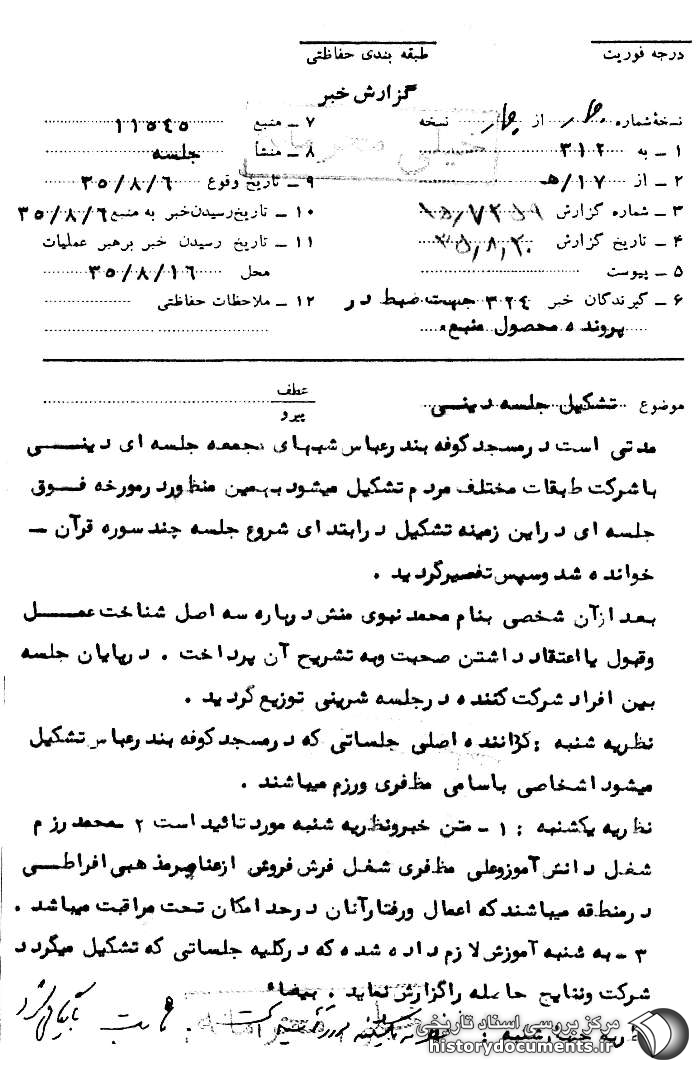 درجه فوریت
طبقه بندی حفاظتی
گزارش خبر
نسخهٔ شماره چهار از چهار نسخه
۱ ـ به ۳۱۲
۲ ـ از ۱۷/هـ
۳ ـ شماره گزارش
۴ ـ تاریخ گزارش ۳۵٫۸٫۲۰
۵ ـ پیوست
۶ ـ گیرندگان خبر ۳۲۴ جهت ضبط در
پرونده محصول منبع.
۷ ـ منبع ۱۱۵۴۵
۸ ـ منشأ جلسه
۹ ـ تاریخ وقوع ۳۵/۸/۶
۱۰ ـ تاریخ رسیدن خبر به منبع ۳۵/۸/۶
۱۱ ـ تاریخ رسیدن خبر برهبر عملیات
محل ۳۵/۸/۱۶
۱۲ ـ ملاحظات حفاظتی
خیلی محرمانه
موضوع تشکیل جلسه دینی
عطف
پیرو
مدتی است در مسجد کوفه بندرعباس شبهای جمعه جلسه ای دینی
با شرکت طبقات مختلف مردم تشکیل میشود بهمین منظور در مورخه فوق
جلسه ای در این زمینه تشکیل در ابتدای شروع جلسه چند سوره قرآن ـ
خوانده شد و سپس تفصیر گردید .
بعد از آن شخصی بنام محمد نبوی منش درباره سه اصل شناخت عمل
وقبول یا اعتقاد داشتن صحبت وبه تشریح آن پرداخت . در پایان جلسه
بین افراد شرکت کننده در جلسه شرینی توزیع گردید .
نظریه شنبه : گراننده اصلی جلساتی که در مسجد کوفه بندرعباس تشکیل
میشود اشخاصی باسامی مظفری ورزم میباشند .
نظریه یکشنبه : ۱ ـ متن خبر ونظریه شنبه مورد تائید است ۲ ـ محمد رزم
شغل دانش آموز وعلی مظفری شغل فرش فروش از عناصر مذهبی افراطی
در منطقه میباشند که اعمال ورفتار آنان در حد امکان تحت مراقبت میباشد .
۳ ـ به شنبه آموزش لازم داده شده که در کلیه جلساتی که تشکیل میگردد
شرکت ونتایج حاصله را گزارش نماید . بیضاء
نظریه چهارشنبه : نظریه یکشنبه مورد تائید است .
مرکز بررسی اسناد تاریخی
historydocuments.ir